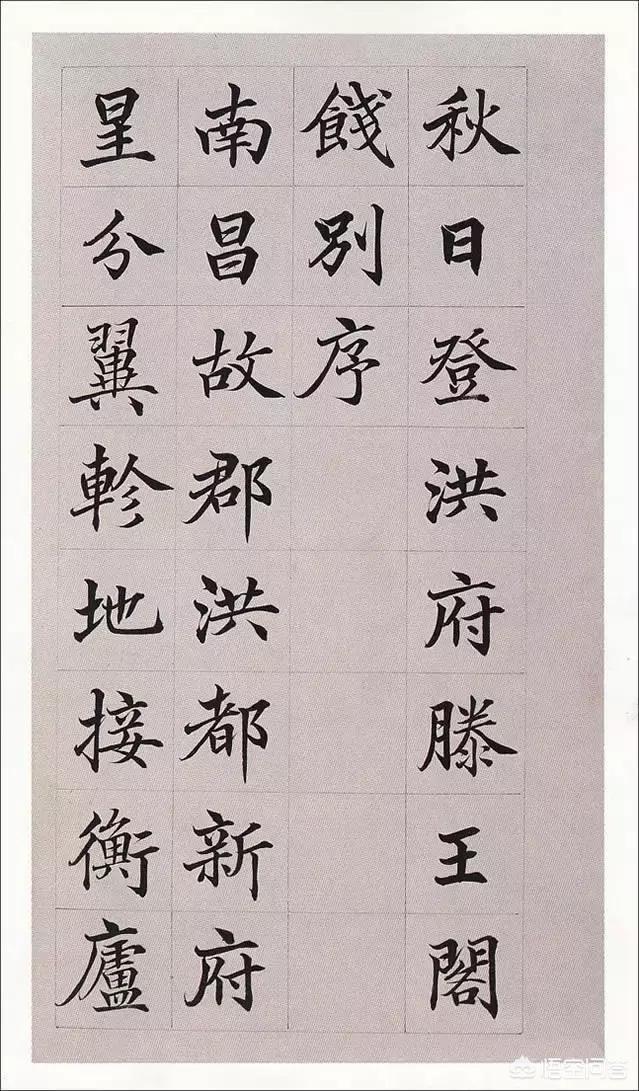 秋日登洪府滕王閣
餞別序
南昌故郡洪都新府
星分翼軫地接衡廬
悟空问答